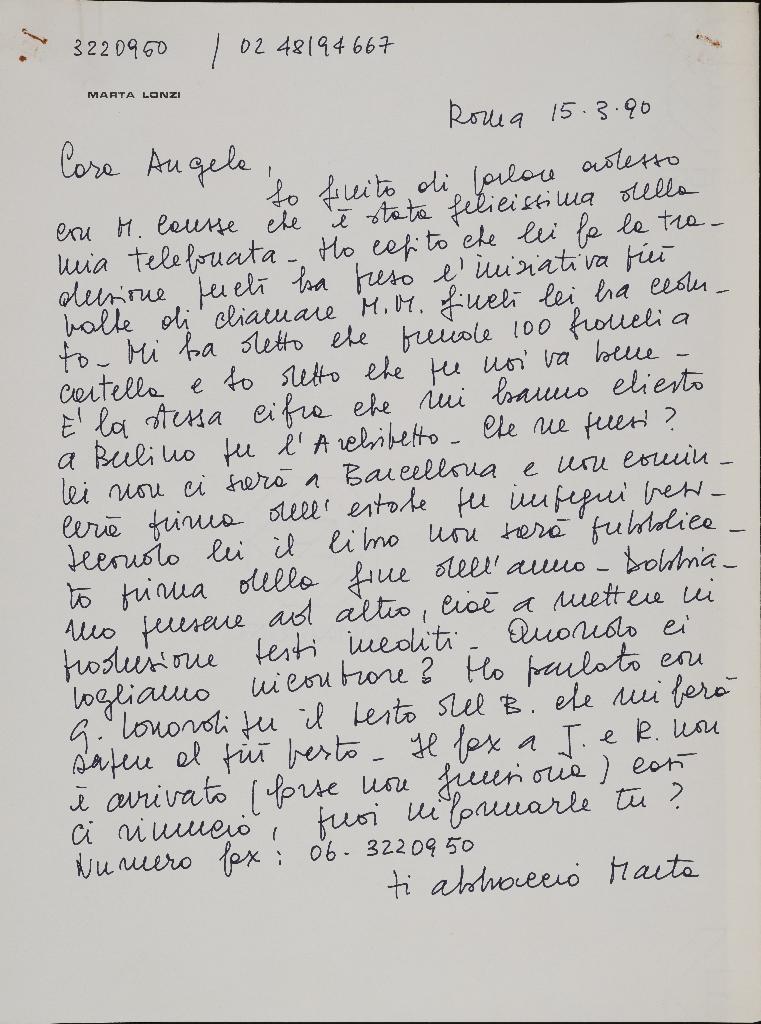 3220950 / 02 48194667
MARTA LONZI
Roma 15.3.90
Cara Angela,
Ho finito di parlare adesso
con M. Causse che è stata felicissima della
mia telefonata - Ho capito che lei fa la tra-
duzione perché ha preso l'iniziativa più
volte di chiamare M.M. finché lei ha cedu-
to - Mi ha detto che prende 100 franchi a
cartella e ho detto che per noi va bene -
E' la stessa cifra che mi hanno chiesto
a Berlino per l'Architetto - Che ne pensi?
lei non ci sarà a Barcellona e non comin-
cerà prima dell'estate per impegni presi -
Secondo lei il libro non sarà pubblica-
to prima della fine dell'anno - Dobbia-
mo pensare ad altro, cioè a mettere in
produzione testi inediti - Quando ci
vogliamo incontrare? Ho parlato con
G. per il testo del B. che mi farà
sapere al più presto - Il fax a J. e R. non
è arrivato (forse non funziona) così
ci rinuncio, puoi informarle tu?
Numero fax: 06-3220950
ti abbraccio Marta